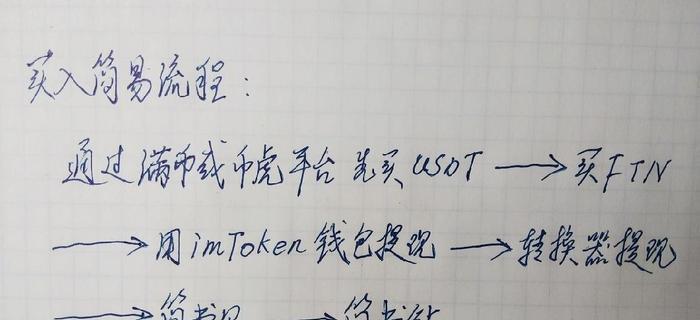 买入简易流程：
通过满币或币虎平台先买USDT → 买FTN
→ 用imToken钱包提现 → 转换器提现
→ 简书贝 → 简书